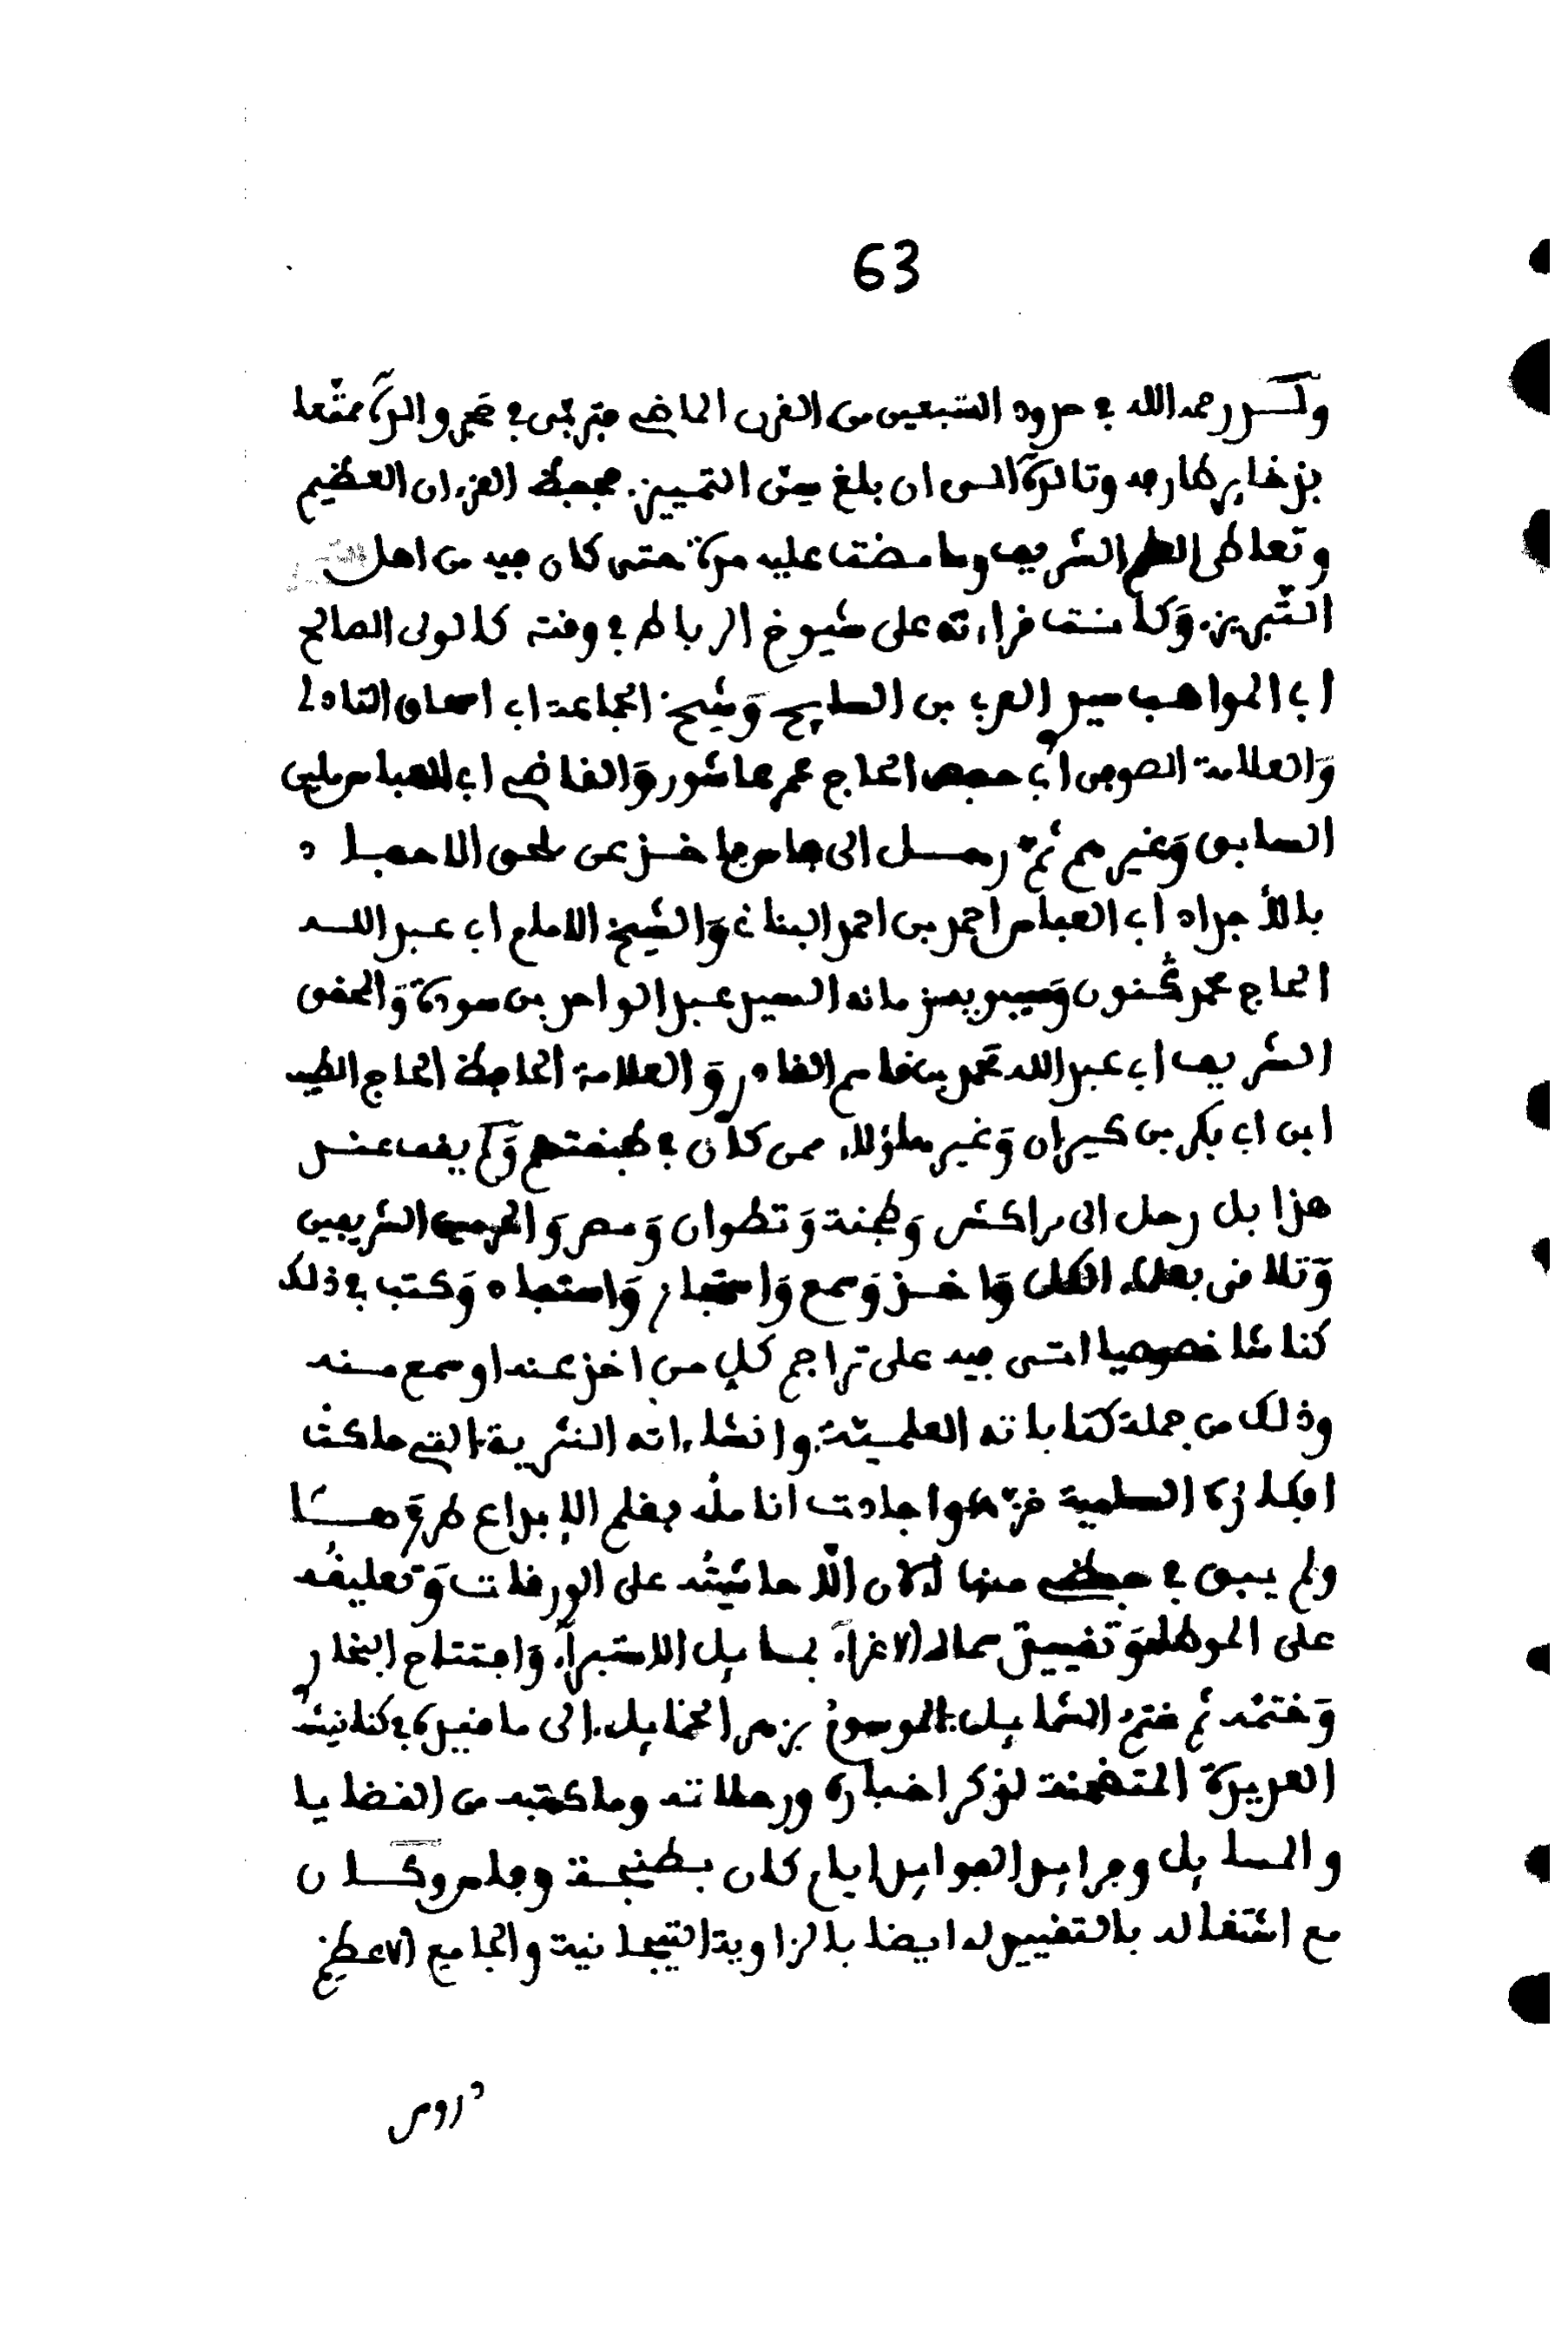 63
ولد رحمه الله في حدود السبعين من القرن الماضي فتربى في حجر والده ممتعا
بذخاير طارفه وتالده الى ان بلغ سن التمييز. فحفظ القرءان العظيم
وتعاطى العلم الشريف وما مضت عليه مدة حتى كان فيه من اهل
التبريز. وكانت قراءته على شيوخ الرباط في وقته كالولي الصالح
ابي المواهب سيدي العربي بن السايح وشيخ الجماعة ابي اسحاق التادلي
والعلامة الصوفي ابي حفص الحاج عمر عاشور والقاضي ابي العباس ملين
السابق وغيرهم ثم رحل الى فاس فاخذ عن ملحق الاحفاد
بالأجداد ابي العباس احمد بن احمد البناني والشيخ الامام ابي عبد الله
الحاج محمد گنون وسيبويه زمانه السيد عبد الواحد بن سودة والمحقق
الشريف ابي عبد الله محمد بن قاسم القادري والعلامة الحافظ الحاج الطيب
ابن ابي بكر بن كيران وغير هاؤلاء ممن كان في طبقتهم ولم يقف عند
هذا بل رحل الى مراكش وطنجة وتطوان ومصر والحرمين الشريفين
وتلاقى بعلماء الكل واخذ وسمع واستجاز واستفاد وكتب في ذلك
كناشا خصوصيا اتى فيه على تراجم كل من اخذ عنه او سمع منه
وذلك من جملة كتاباته العلمية. وانشاءاته النثرية التي حاكت
افكاره السلمية خزها واجادت انامله بقلم الابداع طرزها
ولم يبق في حفظي منها الان الا حاشيته على الورقات وتعليقه
على الموطإ وتقييد سماه الاغراء بمسايل الاستبراء وافتتاح البخاري
وختمه ثم ختم الشمايل. الموسوم بزهر الخمايل. الى ما قيده في كنانيشه
العديدة المتضمنة لذكر اخباره ورحلاته وما كتبه من القضايا
والمسايل وفرايد الفوايد ايام كان بطنجة وفاس وكان
مع اشتغاله بالتقييد له ايضا بالزاوية التيجانية والجامع الاعظم
دروس